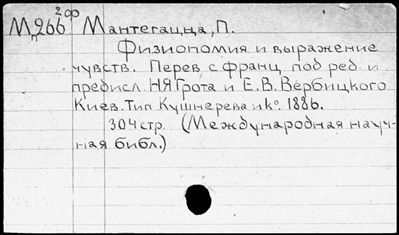 2фф
М 266 Мантегацца, П.
п
Физиономия и выражение
чувств. Перев с франц под ред. и
предисл. Н.Я Грота и Е.В. Вербицкого
Киев. Тип Кушнерева и Ко. 1886.
304 стр. (Международная науч-
ная библ.)